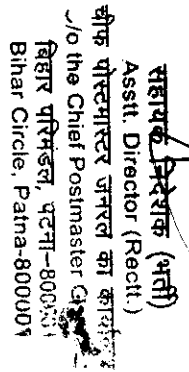 सहायक निदेशक (भर्ती)
Asstt. Director (Rectt.)
चीफ पोस्टमास्टर जनरल का
O/o the Chief Postmaster
बिहार परिमंडल, पटना-800001
Bihar Circle, Patna-800001